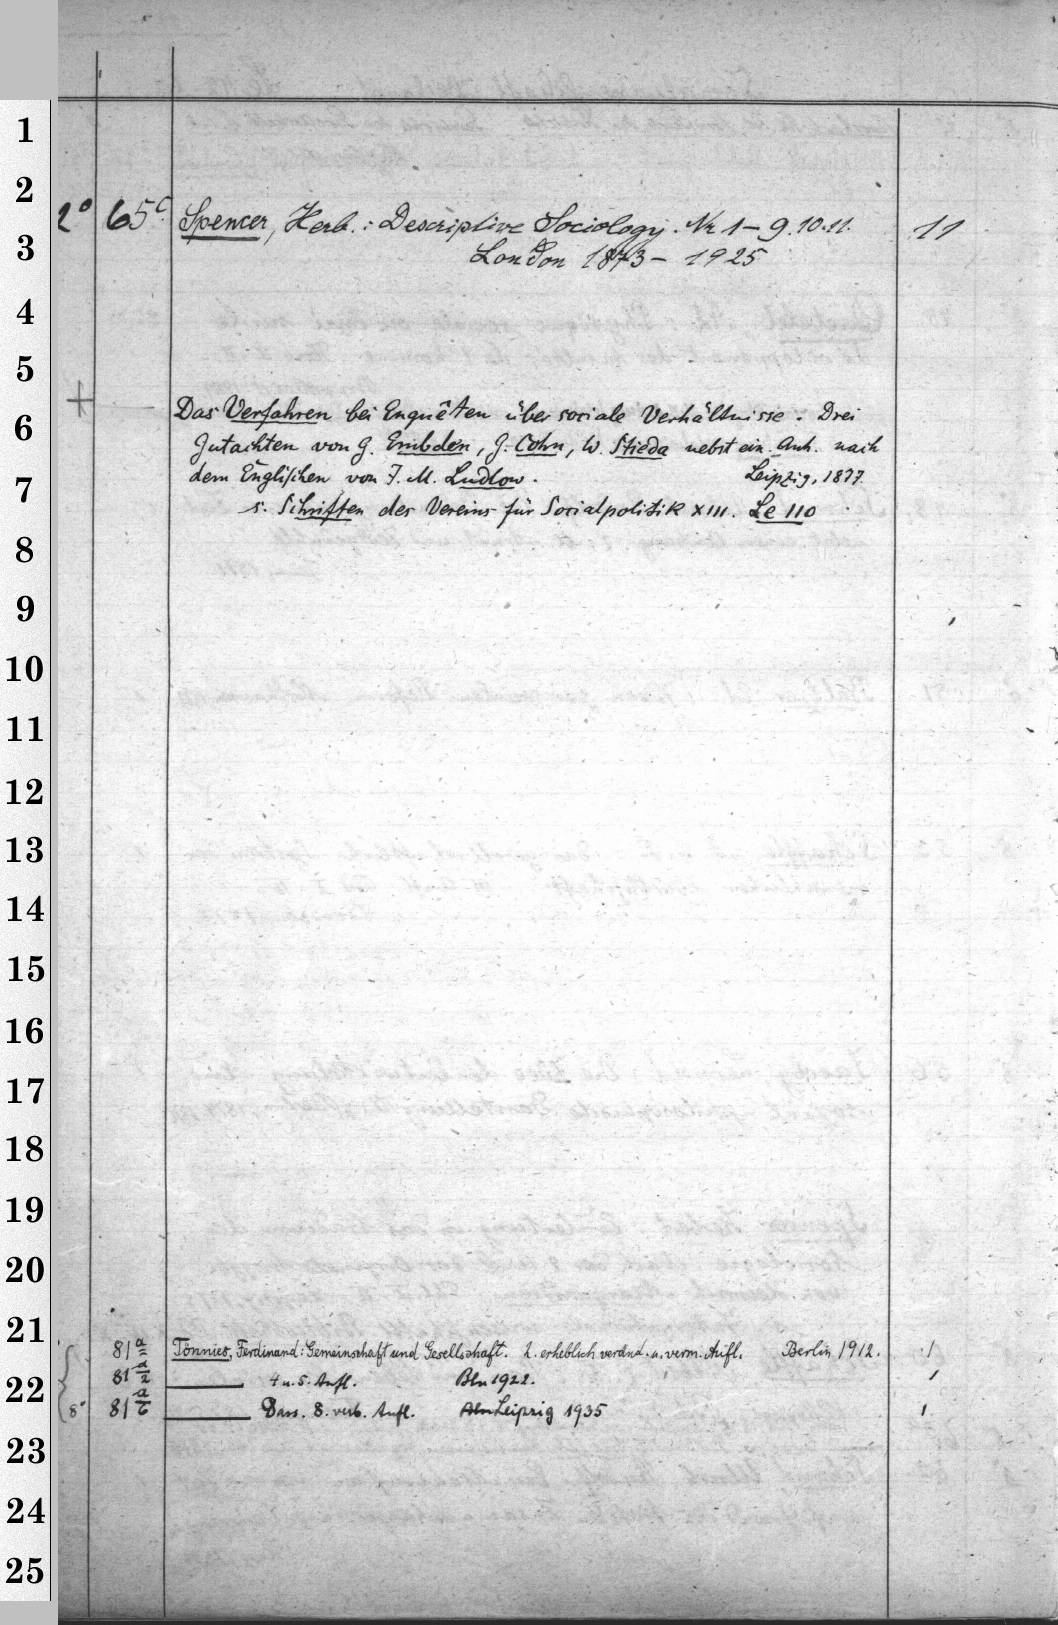 1
2
2° 65c Spencer, Herb.: Descriptive Sociology. Nr 1-9.10.11. 11
3
London 1873- 1925
4
5
+ Das Verfahren bei Enquêten über sociale Verhältnisse. Drei
6
Gutachten von G. Embden, G. Cohn, W. Stieda nebst ein. Anh. nach
dem Englischen von J. M. Ludlow. Leipzig, 1877.
7
s. Schriften des Vereins für Socialpolitik XIII. Le 110
8
9
10
11
12
13
14
15
16
17
18
19
20
21
81 a Tönnies, Ferdinand: Gemeinschaft und Gesellschaft. 2. erheblich veränd. u. verm. Aufl. Berlin 1912. 1
81 a/2 4 u. 5. Aufl. Bln 1922. 1
22
8° 81 a/6 Dass. 8. verb. Aufl. Leipzig 1935 1
23
24
25